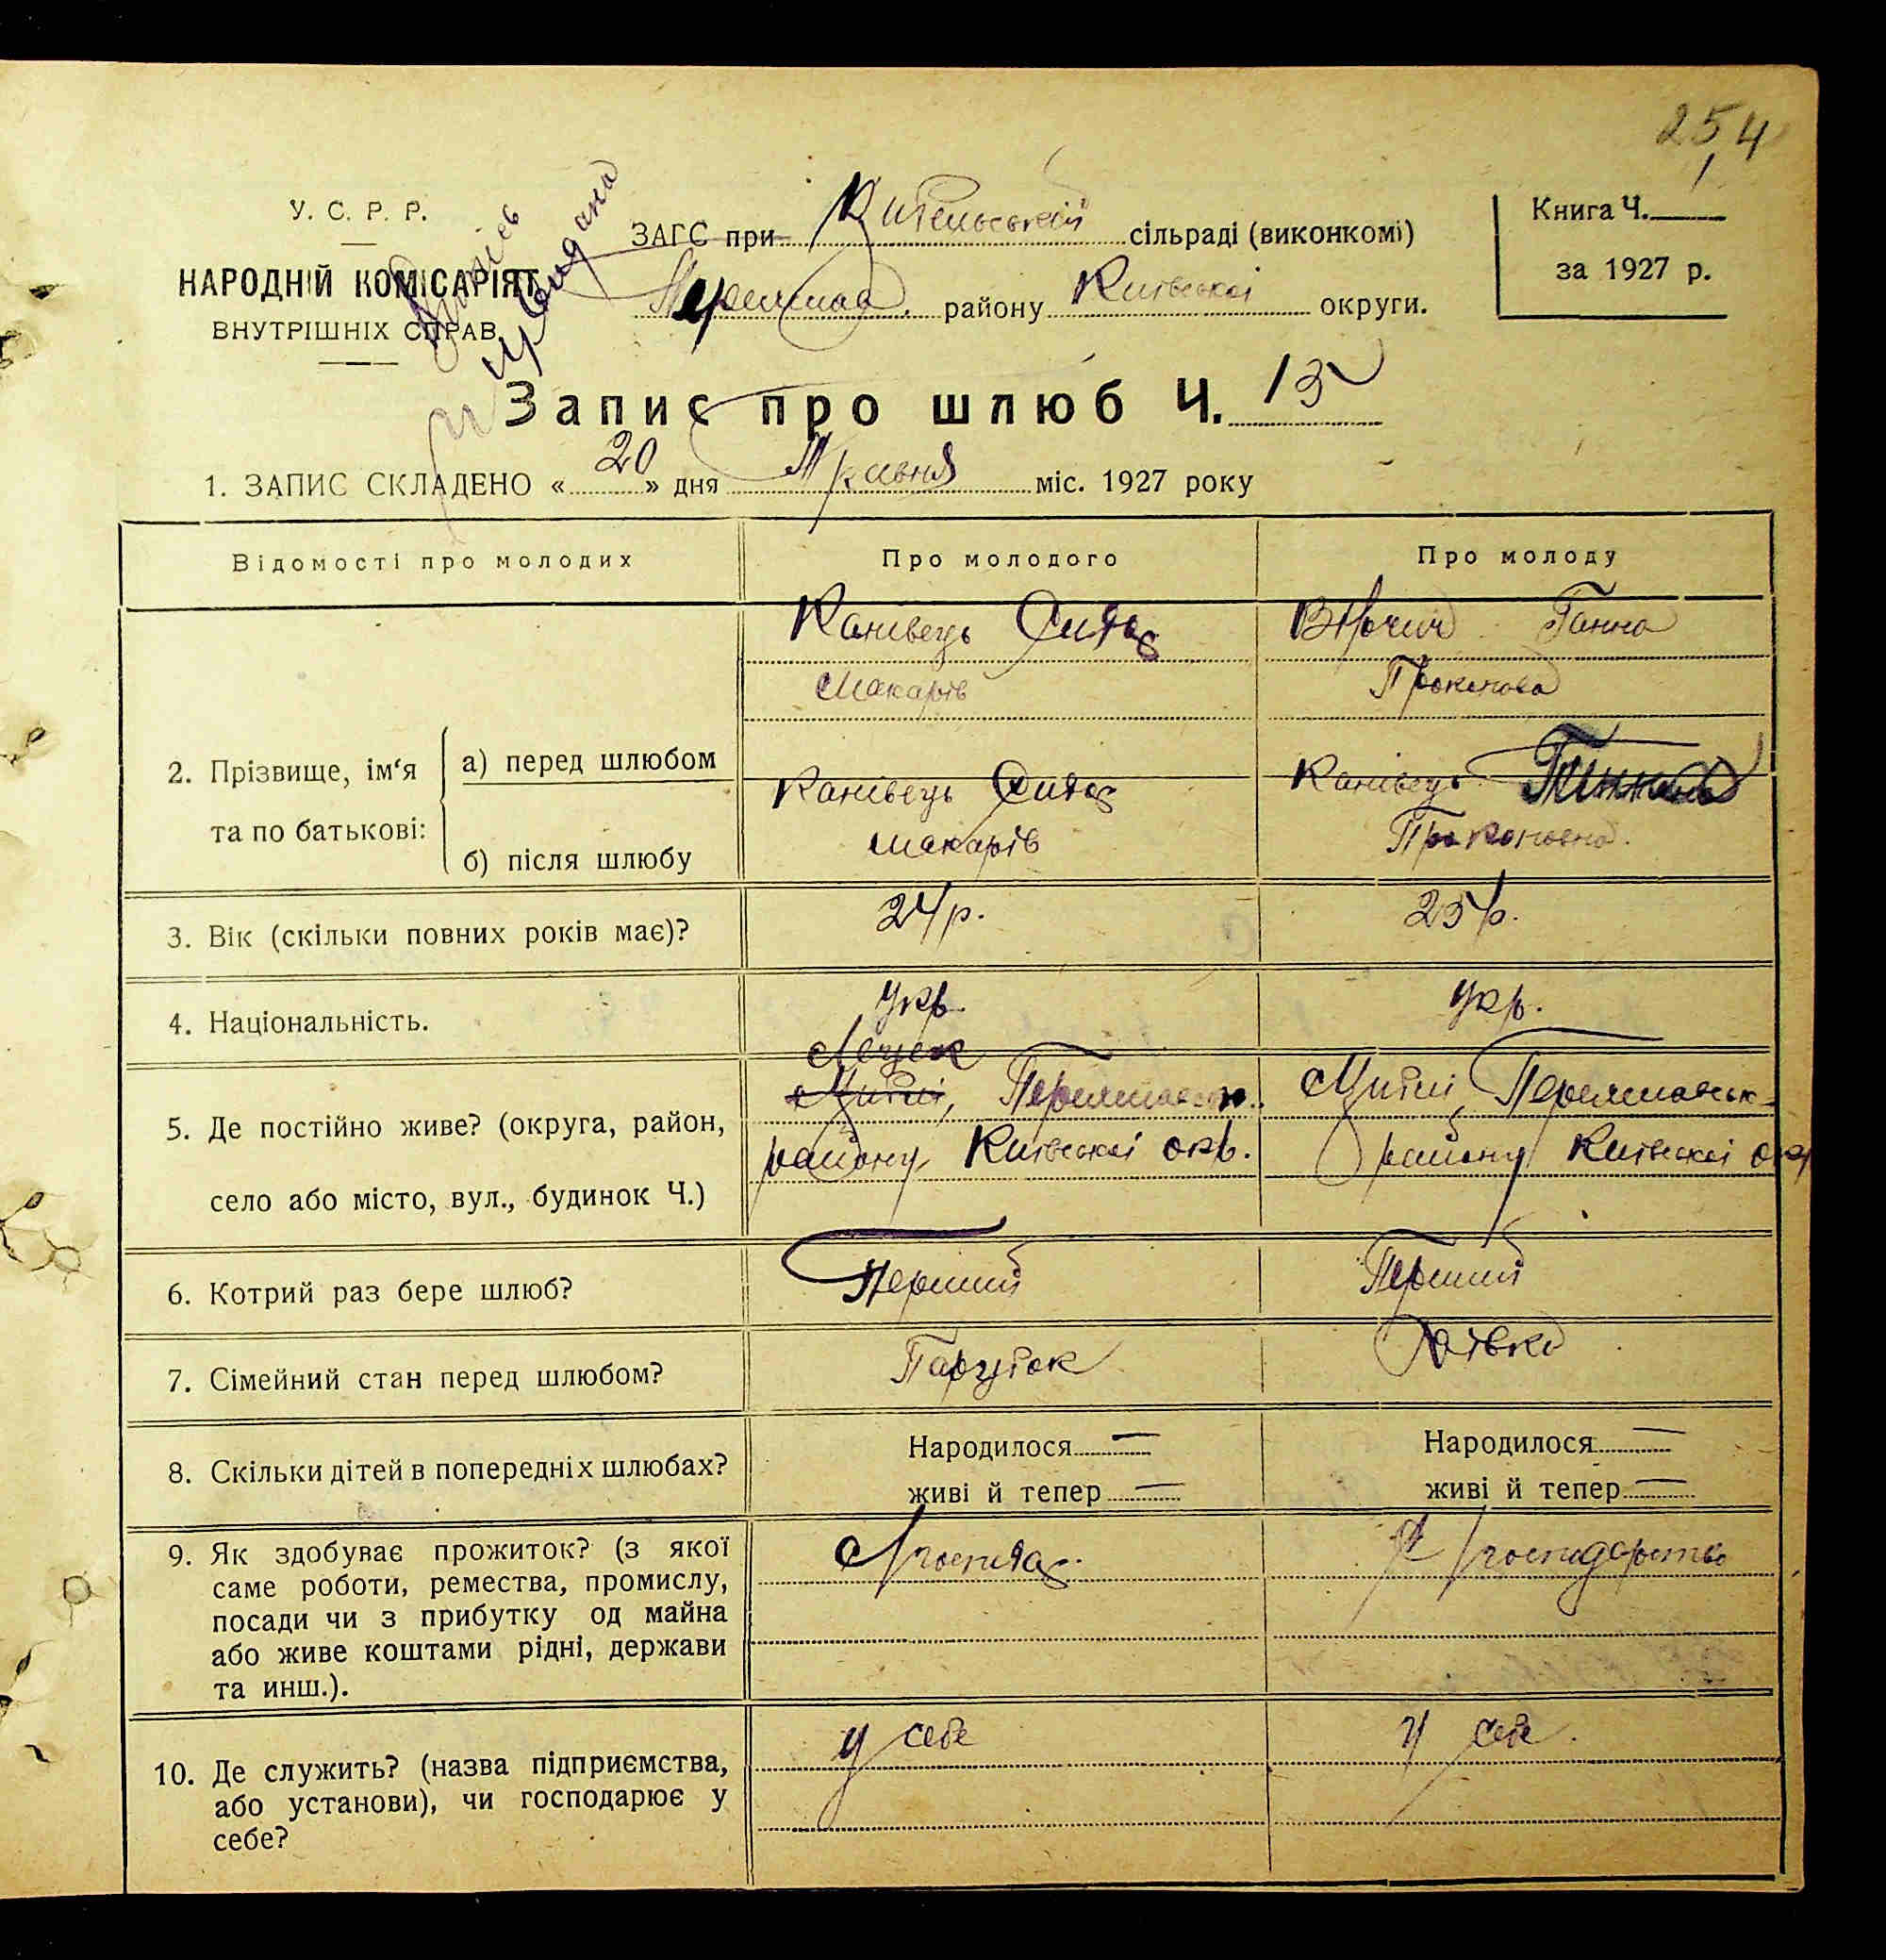 254
У. С. Р. Р.
НАРОДНІЙ КОМІСАРІЯТ
ВНУТРІШНІХ СПРАВ
ЗАГС при сільраді (виконкомі)
району Київської округи.
Книга Ч.
за 1927 р.
Запис про шлюб Ч. 13
1. ЗАПИС СКЛАДЕНО «20» дня Травня міс. 1927 року
Відомості про молодих
Про молодого
Про молоду
2. Прізвище, ім‘я та по батькові:
а) перед шлюбом
б) після шлюбу
Канівець
Макарів
Ганна
Прокопова
Канівець
Макарів
Канівець
Прокоповна.
3. Вік (скільки повних років має)?
24 р.
23 р.
4. Національність.
укр.
укр.
5. Де постійно живе? (округа, район,
село або місто, вул., будинок Ч.)
району, Київської окр.
району Київської окр
6. Котрий раз бере шлюб?
Перший
Перший
7. Сімейний стан перед шлюбом?
Парубок
Дівка
8. Скільки дітей в попередніх шлюбах?
Народилося —
живі й тепер —
Народилося —
живі й тепер —
9. Як здобуває прожиток? (з якої
саме роботи, ремества, промислу,
посади чи з прибутку од майна
або живе коштами рідні, держави
та инш.).
господарство
10. Де служить? (назва підприємства,
або установи), чи господарює у
себе?
у себе
у себе.